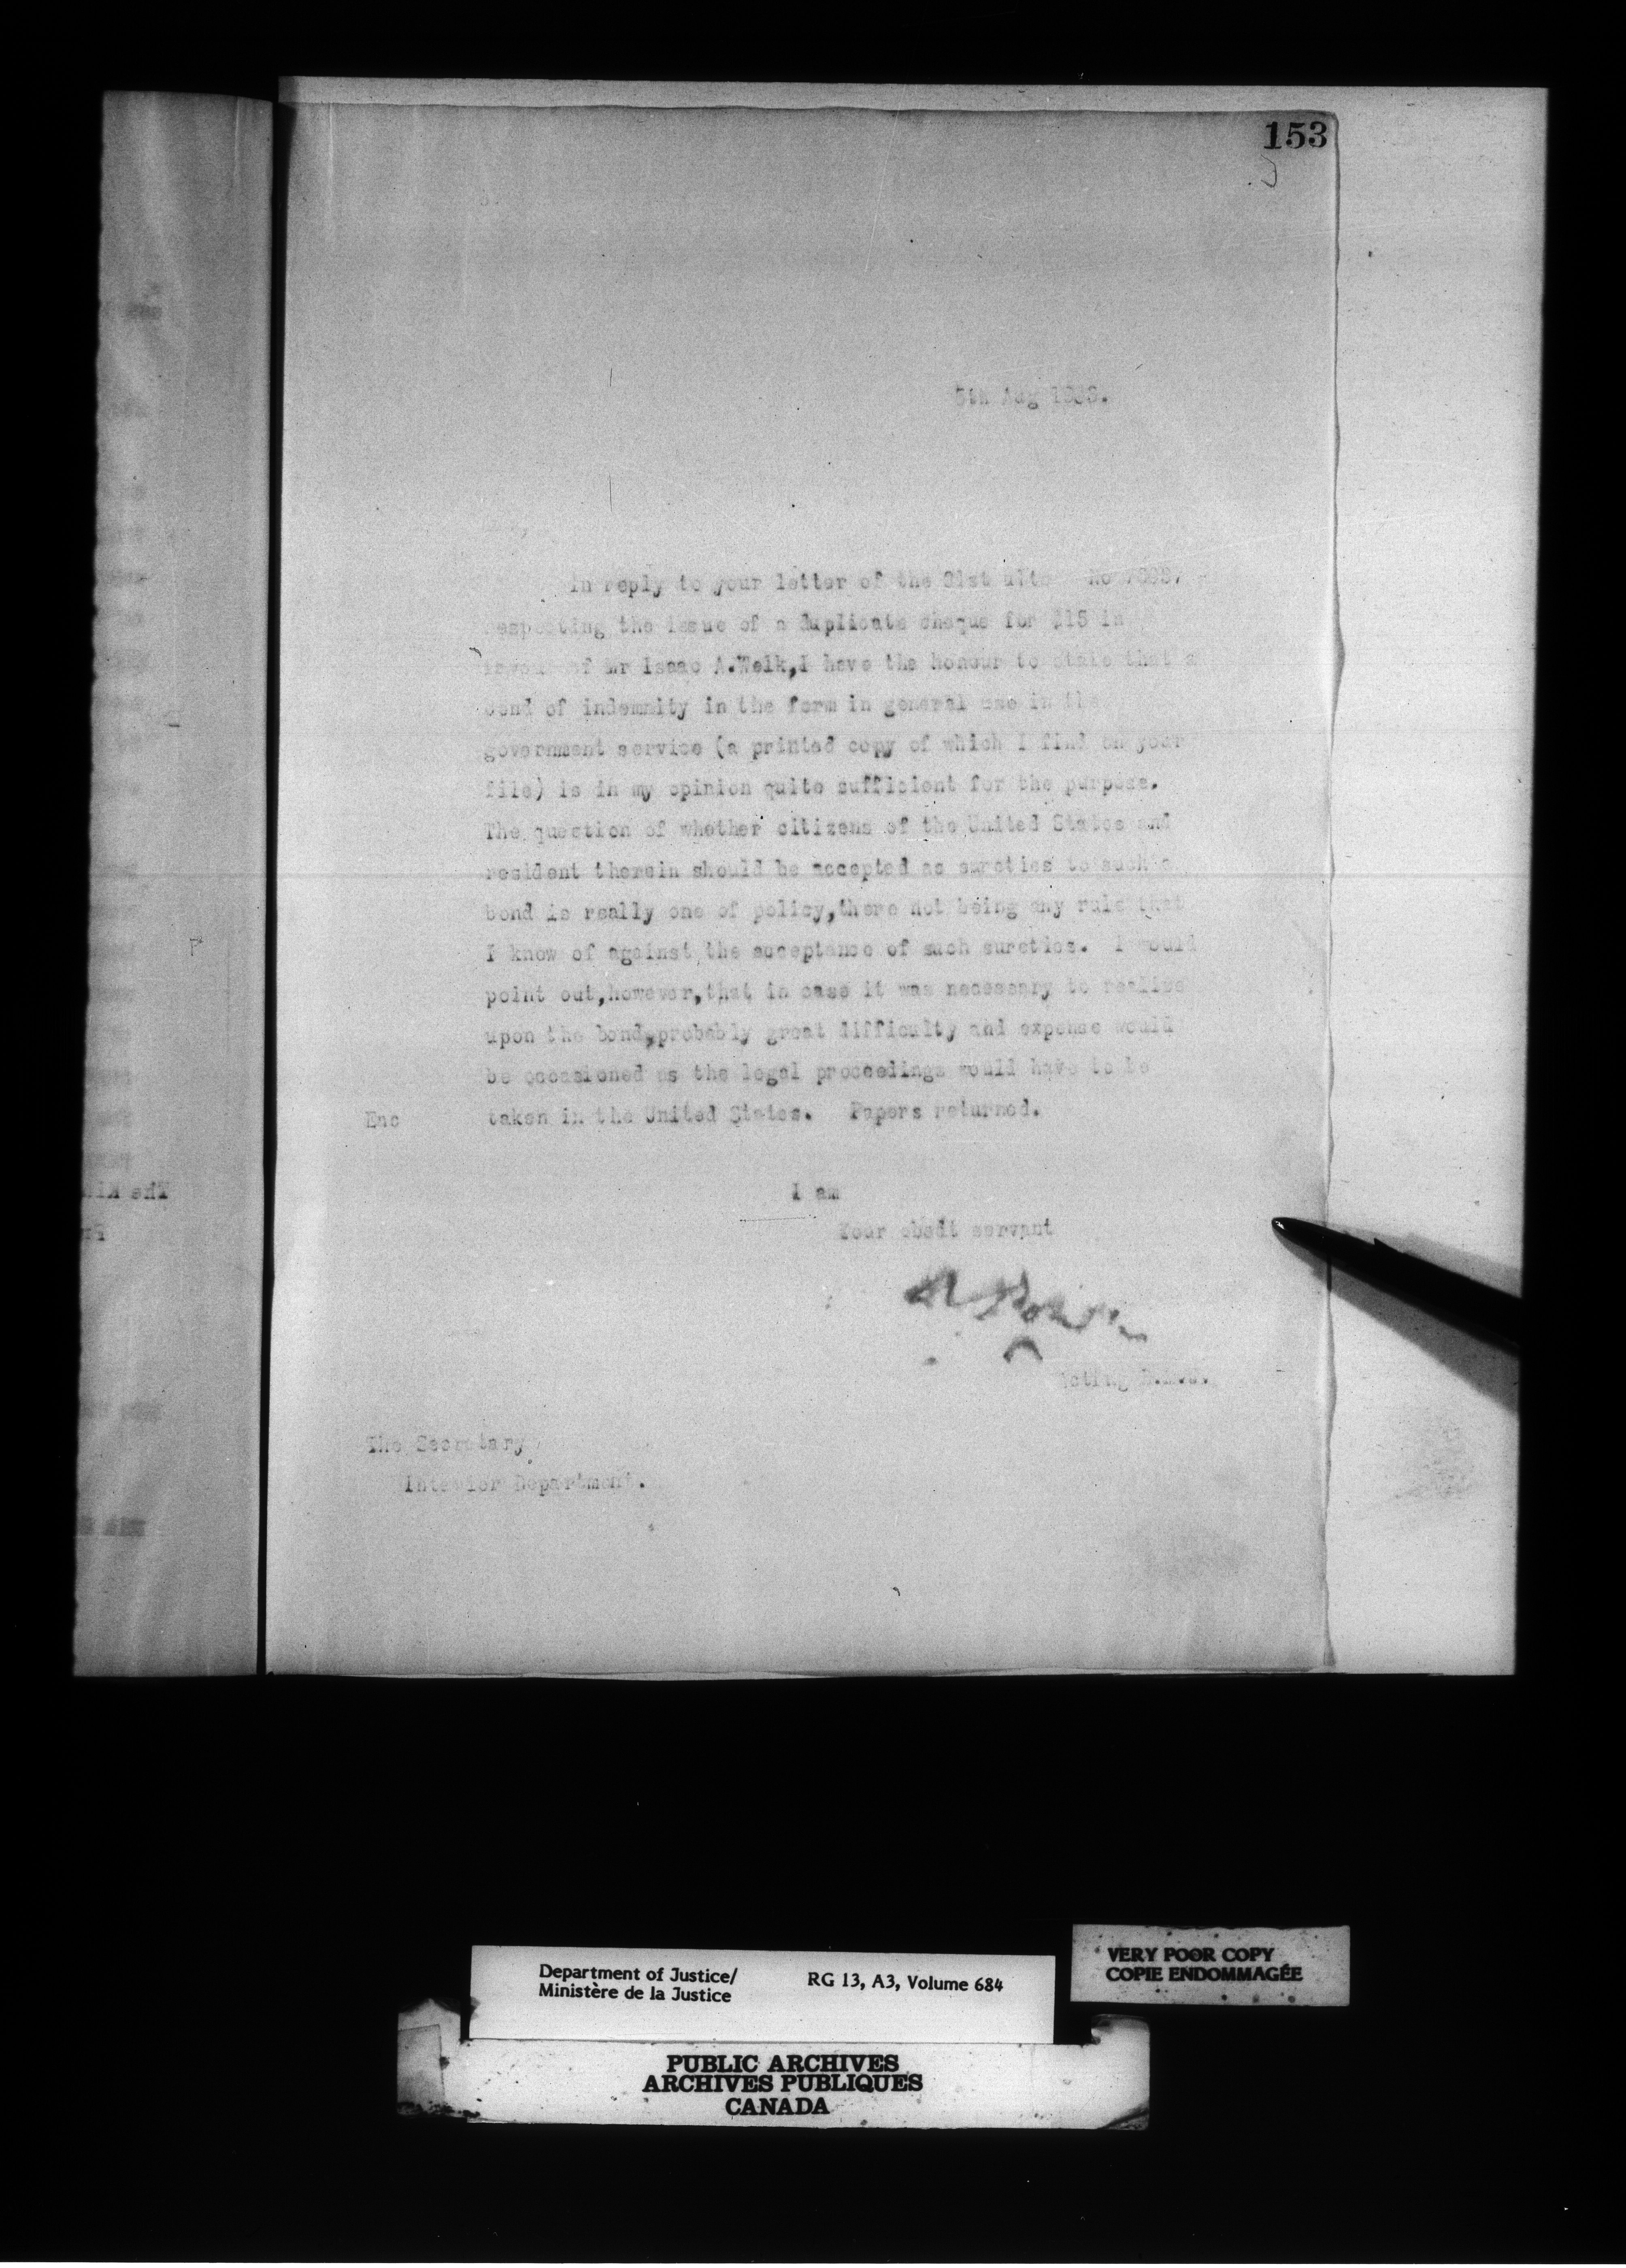 153
5th Aug
In reply to your letter of the 31st ulto No
respecting the issue of a duplicate cheque for $15 in
favour of Mr Isaac A.Welk,I have the honour to state that a
bond of indemnity in the form in general use in the
government service (a printed copy of which I find on your
file) is in my opinion quite sufficient for the purpose.
The question of whether citizens of the United States and
resident therein should be accepted as sureties to such a
bond is really one of policy,there not being any rule that
I know of against the acceptance of such sureties. I would
point out,however,that in case it was necessary to realize
upon the bond,probably great difficulty and expense would
be occasioned as the legal proceedings would have to be
Enc taken in the United States. Papers returned.
I am
Your obedt servant
Acting D.M.J.
The Secretary
Interior Department.
Department of Justice/ RG 13, A3, Volume 684
Ministère de la Justice
VERY POOR COPY
COPIE ENDOMMAGÉE
PUBLIC ARCHIVES
ARCHIVES PUBLIQUES
CANADA